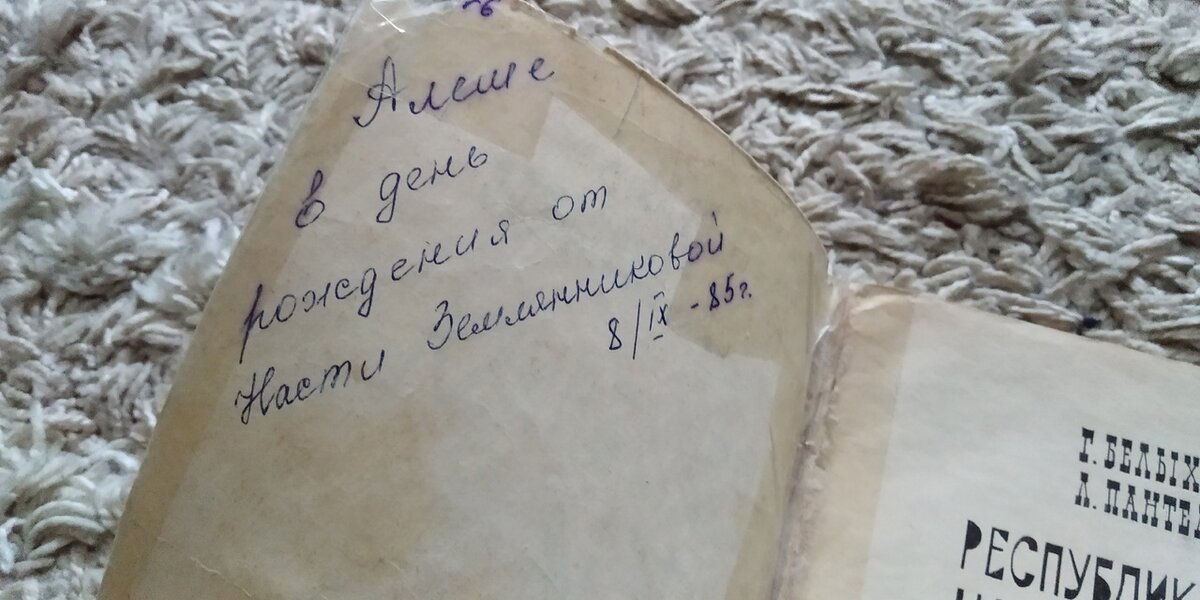 Алеше
в день
рождения от
Насти Земляниковой
8/IX - 85г.
Г. БЕЛЫХ
Л. ПАНТЕ
РЕСПУБЛИК